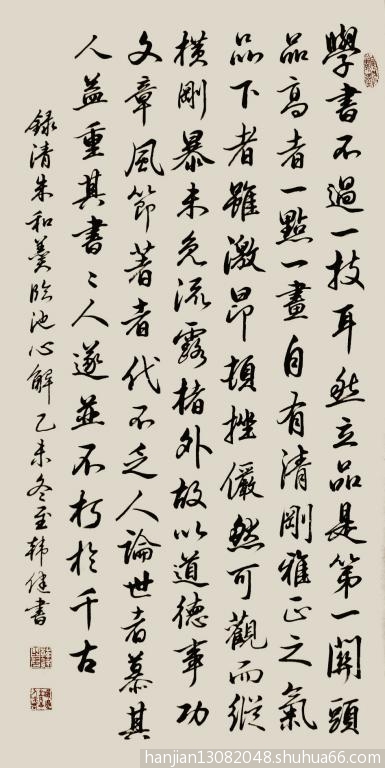 學書不過一技耳然立品是第一關頭
品高者一點一畫自有清剛雅正之氣
品下者雖激昂頓挫儼然可觀而縱
橫剛暴未免流露楮外故以道德事功
文章風節著者代不乏人論世者慕其
人益重其書〻人遂並不朽於千古
録清朱和羹臨池心解乙未冬至韩健書
hanjian13082048.shuhua66.com